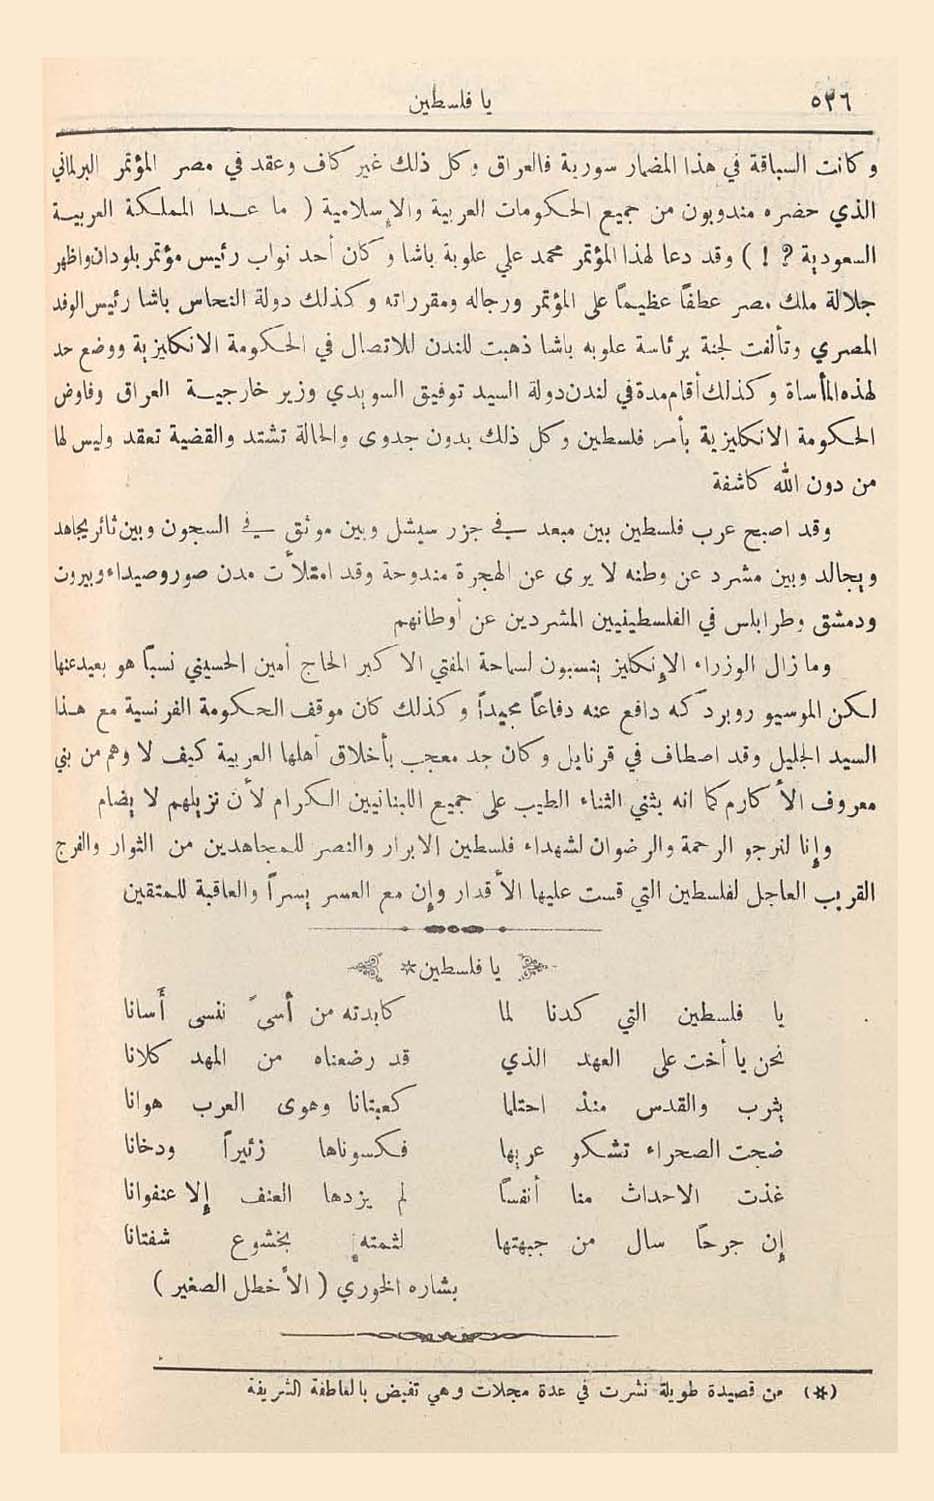 ٥٣٦
يا فلسطين
وكانت السباقة في هذا المضمار سورية فالعراق وكل ذلك غير كاف وعقد في مصر المؤتمر البرلماني
الذي حضره مندوبون من جميع الحكومات العربية والإسلامية ( ما عدا المملكة العربية
السعودية ؟ ! ) وقد دعا لهذا المؤتمر محمد علي علوبة باشا وكان أحد نواب رئيس مؤتمر بلودان واظهر
جلالة ملك مصر عطفاً عظيماً على المؤتمر ورجاله ومقرراته وكذلك دولة النحاس باشا رئيس الوفد
المصري وتألفت لجنة برئاسة علوبه باشا ذهبت للندن للاتصال في الحكومة الانكليزية ووضع حد
لهذه المأساة وكذلك أقام مدة في لندن دولة السيد توفيق السويدي وزير خارجية العراق وفاوض
الحكومة الانكليزية بأمر فلسطين وكل ذلك بدون جدوى والحالة تشتد والقضية تعقد وليس لها
من دون الله كاشفة
وقد اصبح عرب فلسطين بين مبعد في جزر سيشل وبين موثق في السجون وبين ثائر يجاهد
ويجالد وبين مشرد عن وطنه لا يرى عن الهجرة مندوحة وقد امتلأت مدن صور وصيداء وبيروت
ودمشق وطرابلس في الفلسطينيين المشردين عن أوطانهم
وما زال الوزراء الإنكليز ينسبون لسماحة المفتي الاكبر الحاج أمين الحسيني نسباً هو بعيد عنها
لكن الموسيو روبردكه دافع عنه دفاعاً مجيداً وكذلك كان موقف الحكومة الفرنسية مع هذا
السيد الجليل وقد اصطاف في قرنايل وكان جد معجب بأخلاق أهلها العربية كيف لا وهم من بني
معروف الأكارم كما انه يثني الثناء الطيب على جميع اللبنانيين الكرام لأن نزيلهم لا يضام
وإنا لنرجو الرحمة والرضوان لشهداء فلسطين الابرار والنصر للمجاهدين من الثوار والفرج
القريب العاجل لفلسطين التي قست عليها الأقدار وإن مع العسر يسراً والعاقبة للمتقين
يا فلسطين *
يا فلسطين التي كدنا لما كابدته من أسىً نفسى أَسانا
نحن يا أخت على العهد الذي قد رضعناه من المهد كلانا
يثرب والقدس منذ احتلما كعبتانا وهوى العرب هوانا
ضجت الصحراء تشكو عريها فكسوناها زئيراً ودخانا
غذت الاحداث منا أنفساً لم يزدها العنف إلا عنفوانا
إن جرحاً سال من جبهتها لثمته بخشوع شفتانا
بشاره الخوري ( الأخطل الصغير )
(*) من قصيدة طويلة نشرت في عدة مجلات وهي تفيض بالعاطفة الشريفة